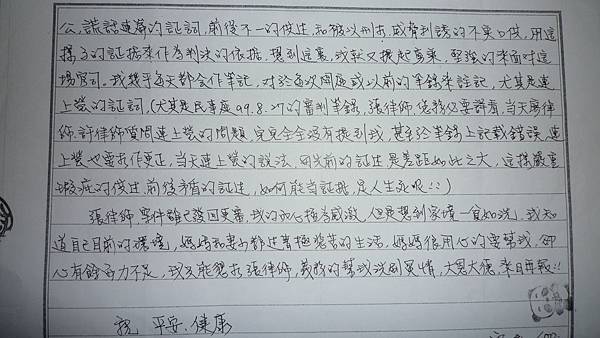 公,謊話連篇的証詞,前後不一的供述,和被以刑求,威脅利誘的不實口供,用這
樣子的証据來作為判決的依据,想到這裏,我就又提起筆來,堅強的來面對這
場官司。我幾乎每天都會作筆記,对於每次開庭或以前的筆錄來註記,尤其是連
上榮的証詞,(尤其是民事庭99.8.27的審判筆錄,張律師,您務必要詳看,当天
律師許律師質問連上榮的問題,完完全全沒有提到我,甚至於筆錄上記載錯誤,連
上榮也要求作更正,当天連上榮的說法,同先前的証述是差距如此之大,這樣嚴重
瑕疵的供述,前後矛盾的証述,如何能当証据,定人生死呢!!)
張律師,案件雖已發回更審,我的內心極為感激,但只想到家境一貧如洗,我知
道自己目前的環境,媽媽和妻子都过着極艱苦的生活,媽媽很用心的要幫我,卻
心有餘而力不足,我只能懇求張律師,義務的幫我洗刷冤情,大恩大德,來日再報!!
祝 平安、健康